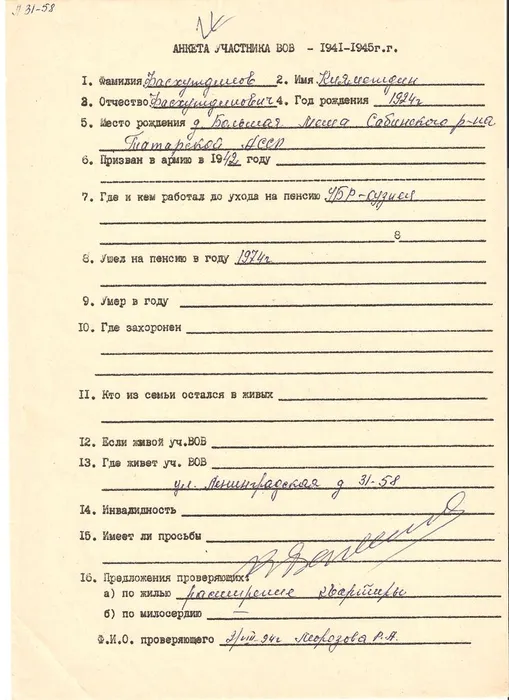 Л 31-58
АНКЕТА УЧАСТНИКА ВОВ - 1941-1945г.г.
1. Фамилия Басхутдинов 2. Имя Кияметдин
3. Отчество Басхутдинович 4. Год рождения 1924г
5. Место рождения д. Большая Меша Сабинского р-на
Татарской АССР
6. Призван в армию в 1942 году
7. Где и кем работал до ухода на пенсию УБР-кузнец
8
8. Ушел на пенсию в году 1974г
9. Умер в году
10. Где захоронен
11. Кто из семьи остался в живых
12. Если живой уч.ВОВ
13. Где живет уч. ВОВ
ул. Ленинградская д 31-58
14. Инвалидность
15. Имеет ли просьбы
16. Предложения проверяющих:
а) по жилью расширение квартиры
б) по милосердию —
Ф.И.О. проверяющего 2/VIII-94г Морозова Р.А.